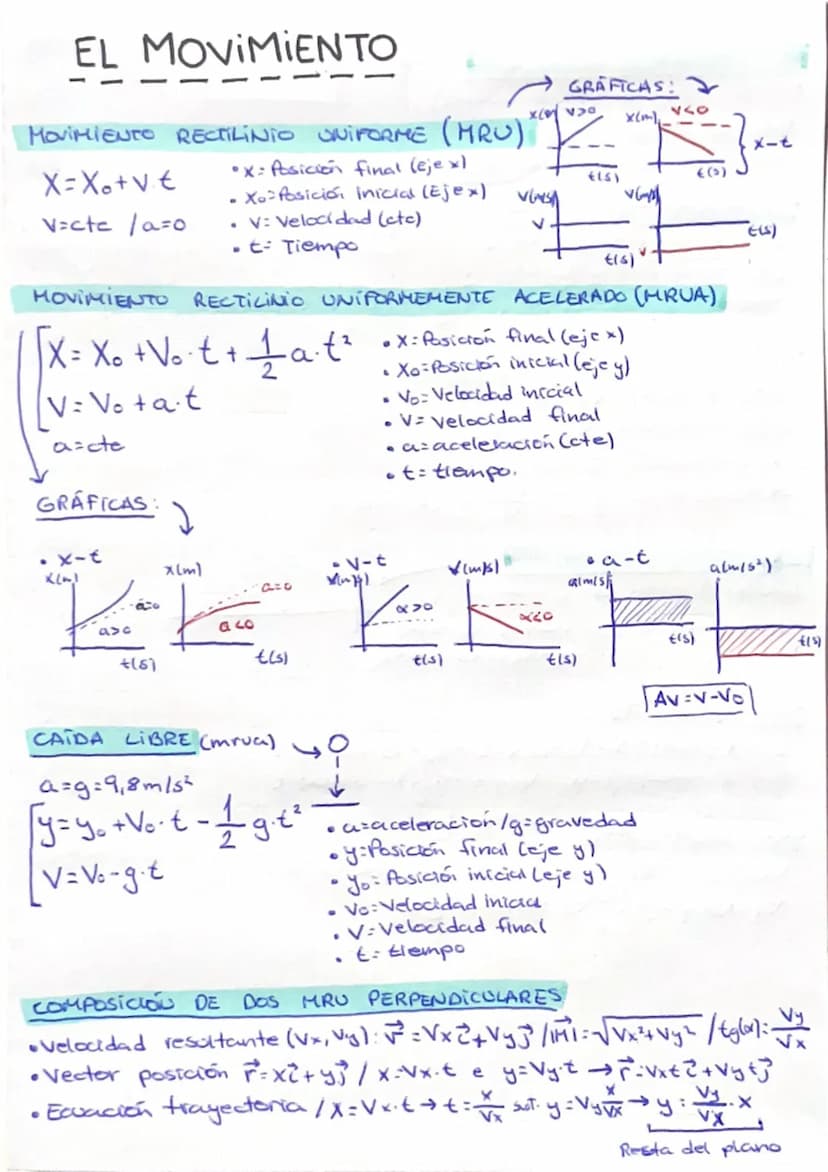 EL MOVIMIENTO
GRÁFICAS:
MOVIMIENTO RECTILINIO UNIFORME (MRU)
X=X₀+V·t
V=cte /a=0
• X: Posición final (eje x)
• X₀= Posición inicial (Eje x)
• V: Velocidad (cte)
• t: Tiempo
V>0
t(s)
X(m)
V<0
t(s)
x-t
V(m/s)
V
t(s)
V(m/s)
V
t(s)
MOVIMIENTO RECTILINIO UNIFORMEMENTE ACELERADO (MRUA)
X= X₀ +V₀·t + 1/2 a·t²
V= V₀ +a·t
a=cte
• X: Posición final (eje x)
• X₀=Posición inicial (eje y)
• V₀= Velocidad inicial
• V= velocidad final
• a= aceleración (cte)
• t= tiempo.
GRÁFICAS:
• x-t
X(m)
a=0
a>0
t(s)
X(m)
a=0
a<0
t(s)
• V-t
V(m/s)
α>0
t(s)
V(m/s)
α<0
t(s)
• a-t
a(m/s²)
t(s)
a(m/s²)
t(s)
AV=V-V₀
CAÍDA LIBRE (mrua)
a=g=9,8m/s²
y=y₀ +V₀·t - 1/2 g·t²
V=V₀-g·t
• a=aceleración/g=gravedad
• y=Posición final (eje y)
• y₀= Posición inicial (eje y)
• V₀: Velocidad inicial
• V: Velocidad final
• t: tiempo
COMPOSICIÓN DE DOS MRU PERPENDICULARES
• Velocidad resultante (Vx, Vy): v⃗ =Vx i⃗ +Vy j⃗ /|M⃗|=√Vx²+Vy² / tg(α)= Vy/Vx
• Vector posición r⃗=xi⃗+yj⃗ / x=Vx·t e y=Vy·t → r⃗=Vxt i⃗+Vy t j⃗
• Ecuación trayectoria / X=Vx·t → t= x/Vx sust. y=Vy x/Vx → y= Vy/Vx · x
Resta del plano